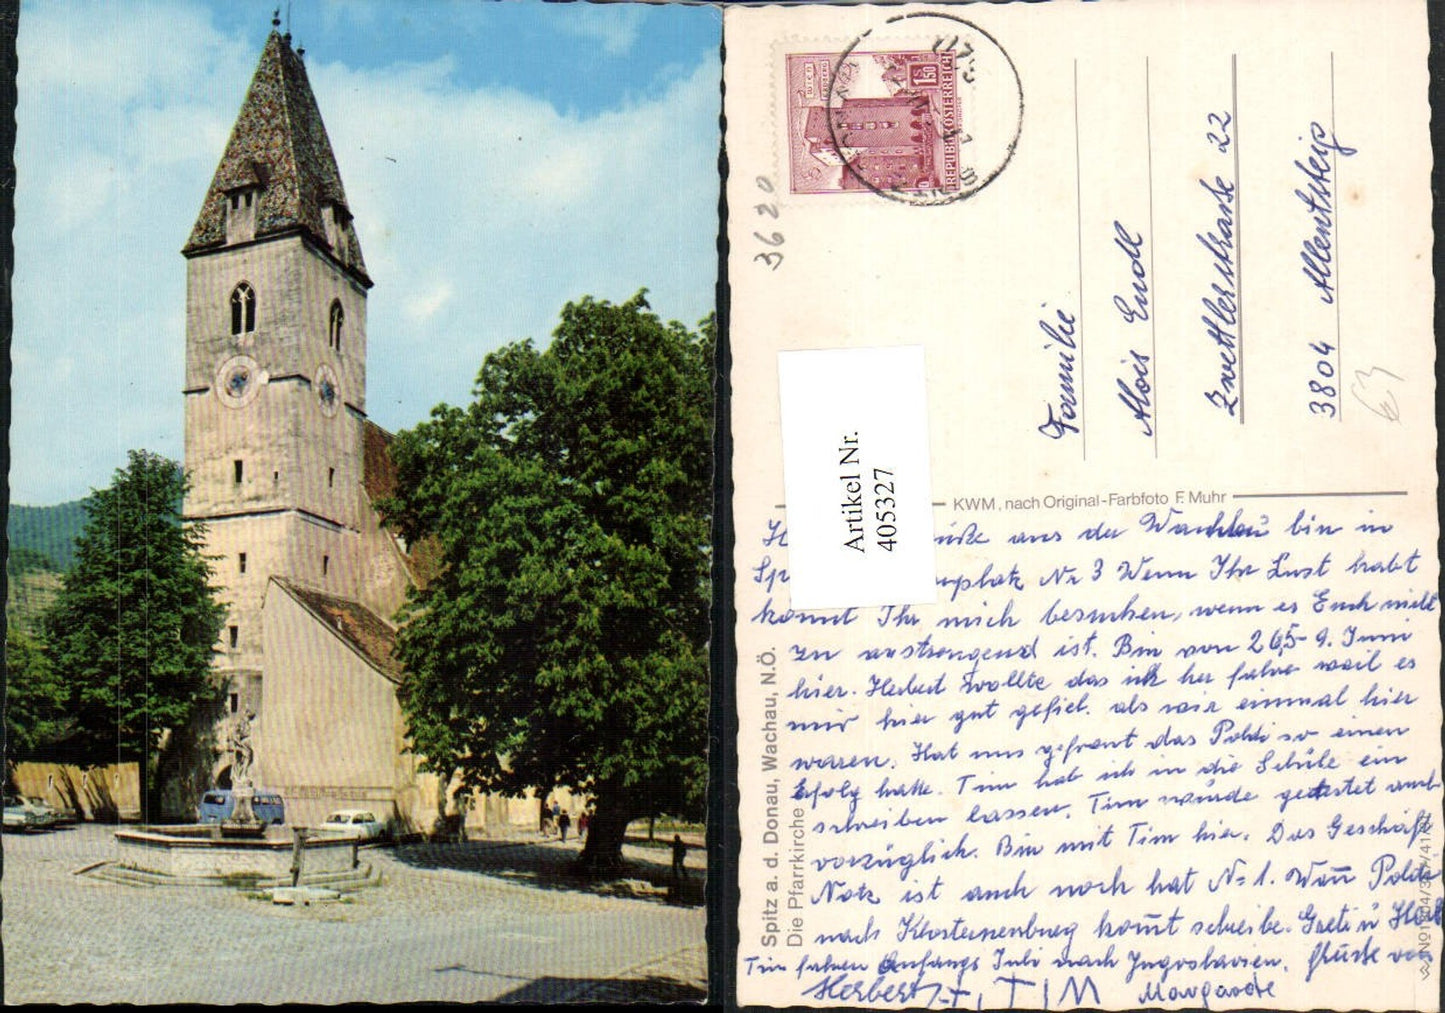 REPUBLIK ÖSTERREICH
S 1.50
3620
Familie
Alois Endl
Zwettlerstraße 22
3804 Allentsteig
63
Artikel Nr.
405327
KWM, nach Original-Farbfoto F. Muhr
Spitz a. d. Donau, Wachau, N.Ö.
Die Pfarrkirche
aus der Wachau bin in
Nr 3 Wenn Ihr Lust habt
kommt Ihr mich besuchen, wenn es Euch nicht
zu anstrengend ist. Bin von 26.5-9. Juni
hier. Herbert wollte das ich her fahre weil es
mir hier gut gefiel. als wir einmal hier
waren. Hat uns gefreut das Poldi so einen
Erfolg hatte. Tim hat ich in die Schule ein
schreiben lassen. Tim wurde getestet und
vorzüglich. Bin mit Tim hier. Das Geschäft
Notz ist auch noch hat N=1. Wann Poldi
nach Klosterneuburg kommt schreibe. Greti u
Tim fahren Anfangs Juli nach Jugoslavien. Grüße von
Herbert, TIM Margarete